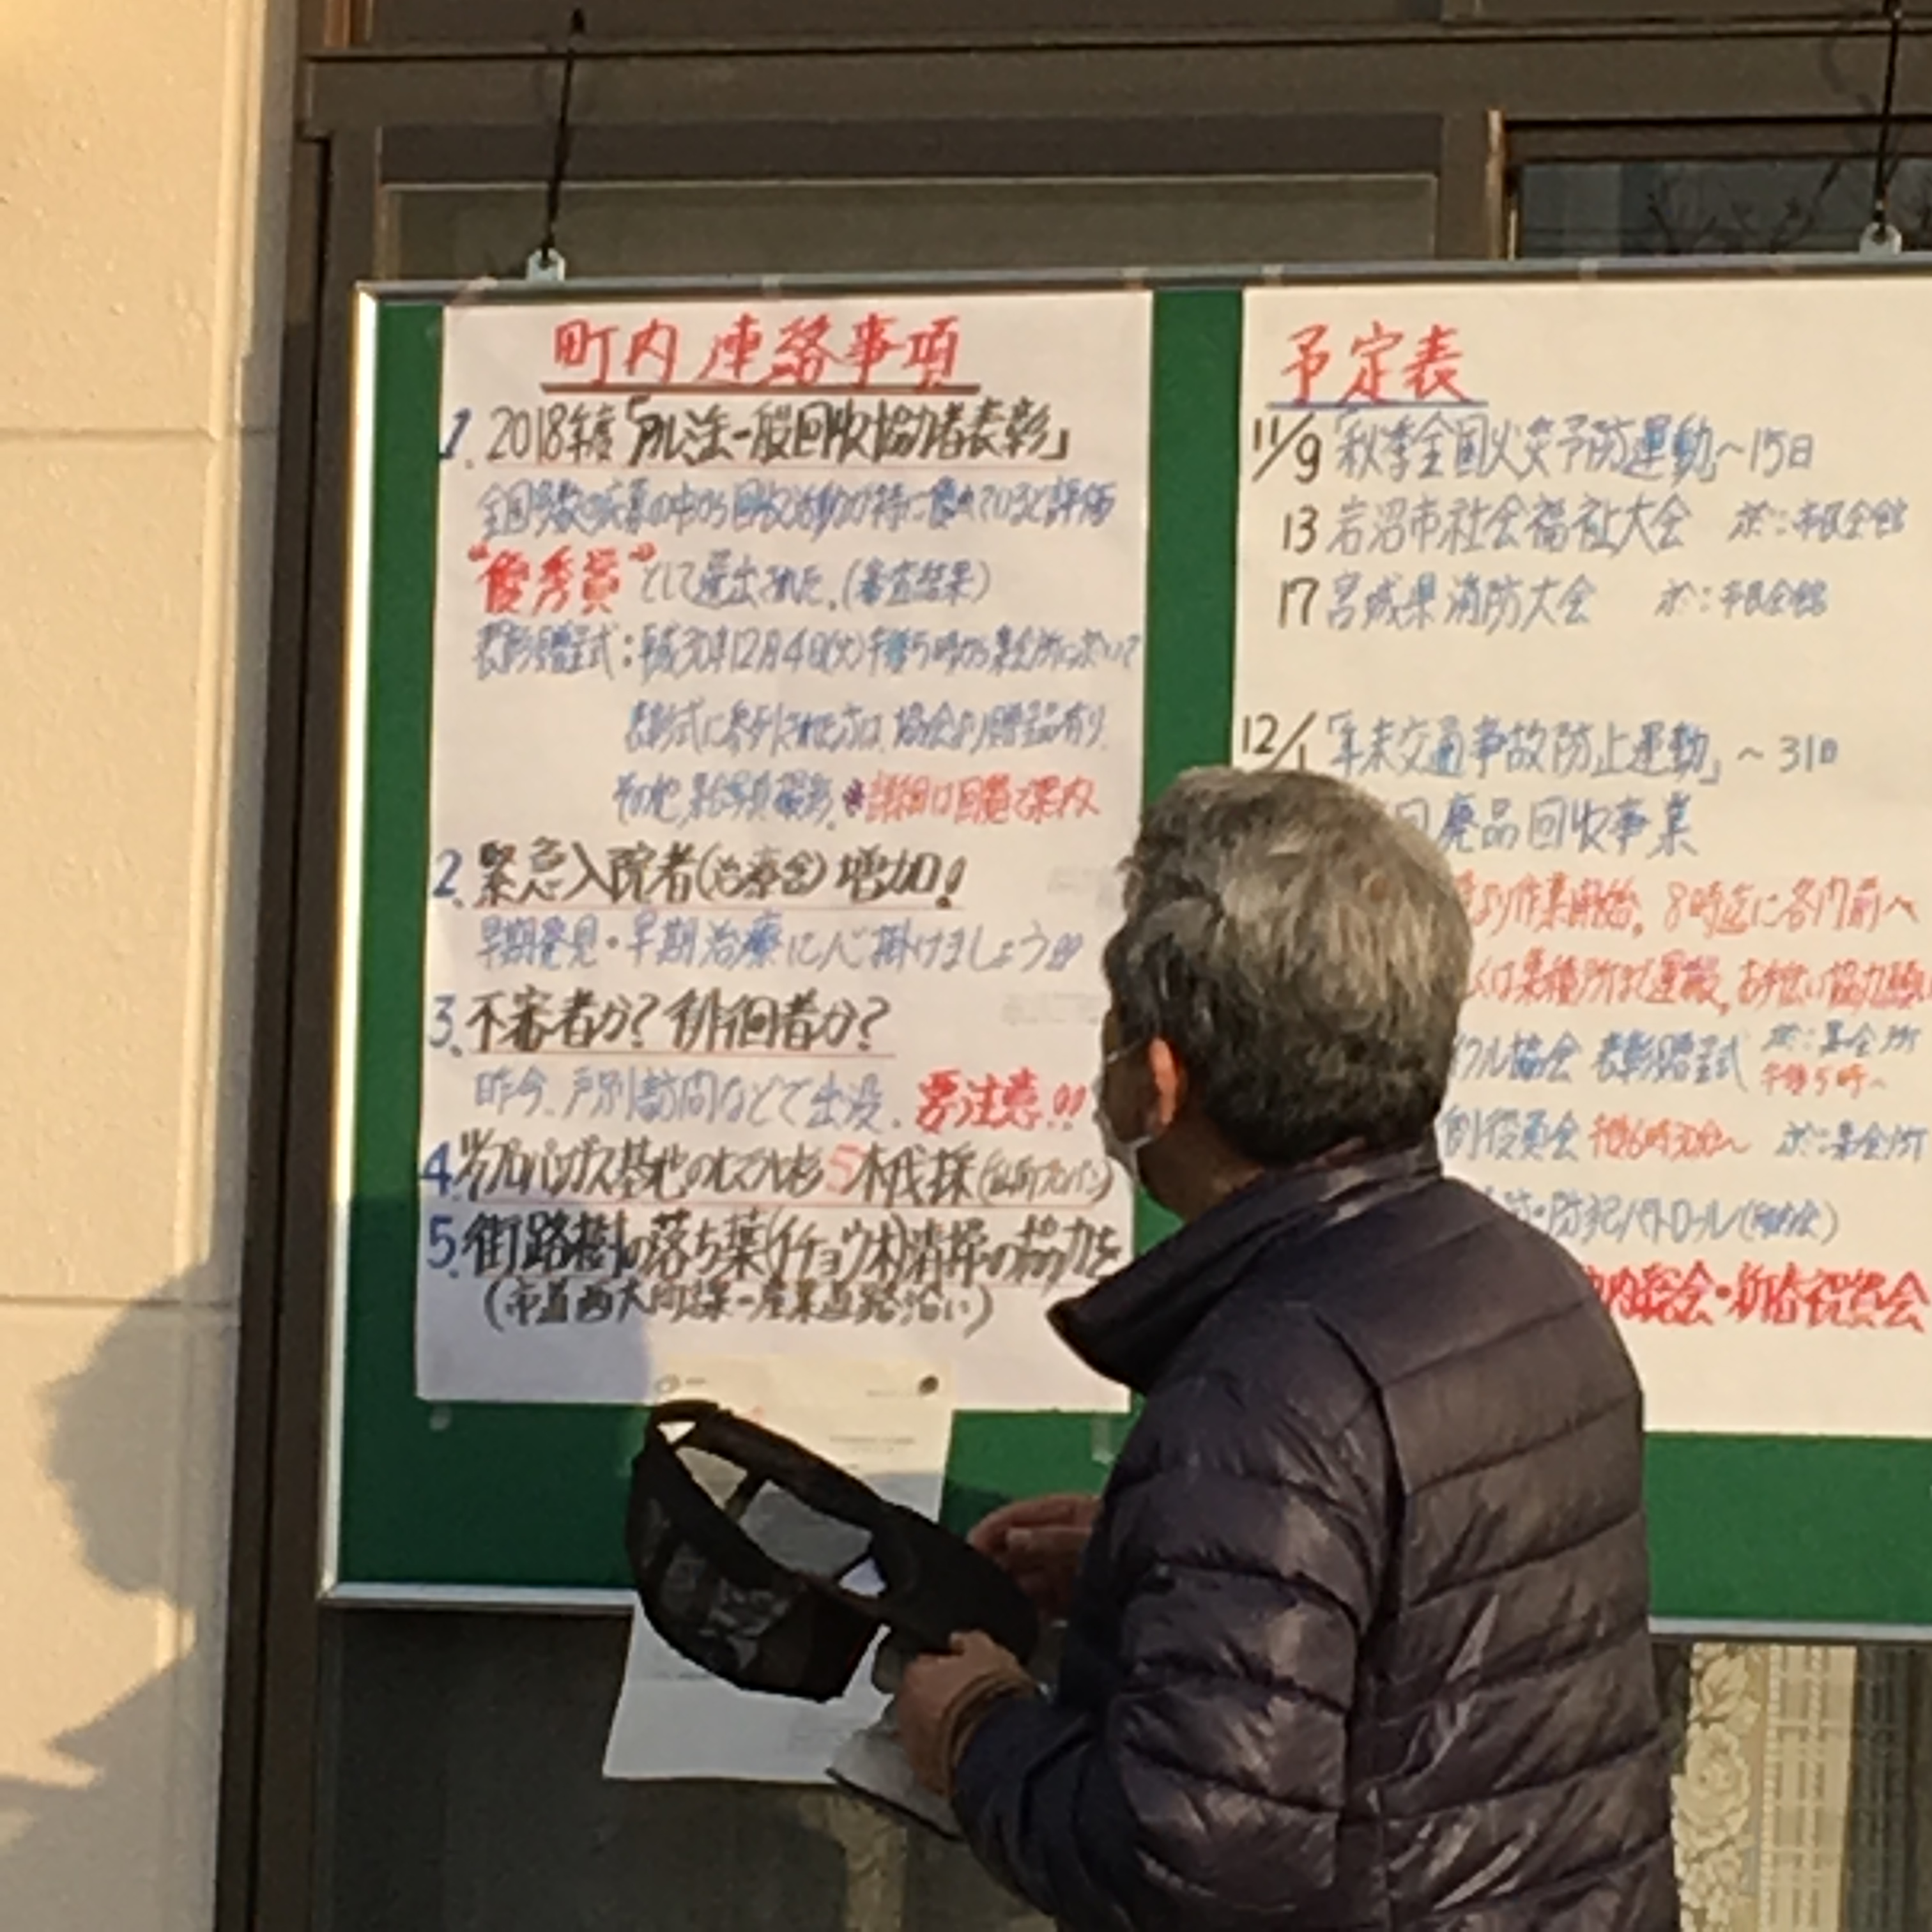 町内連絡事項
1. 2018年度「アルミ缶一般回収協力者表彰」
全国多数の応募の中から回収活動が特に優れていると評価
"優秀賞"として選出された。(審査結果)
表彰贈呈式:平成30年12月4日(火)午後5時から集会所において
表彰式に参列された方は、協会より贈呈品有り
その他、記念写真撮影。※詳細は回覧で案内
2. 緊急入院者(治療含)増加!
早期発見・早期治療に心掛けましょう!!
3. 不審者か?徘徊者か?
昨今、戸別訪問などで出没、要注意!!
4. プロパンガス基地のヒマラヤ杉5本伐採
5. 街路樹の落ち葉(イチョウ木)清掃の協力を
(市道西大町線―産業道路沿い)
予定表
11/9「秋季全国火災予防運動」~15日
13 岩沼市社会福祉大会 於:市民会館
17 宮城県消防大会 於:市民会館
12/1「年末交通事故防止運動」~31日
回廃品回収事業
より作業開始。8時迄に各門前へ
くは集積所まで運搬、お手伝い協力願
クル協会 表彰贈呈式 於:集会所
午後5時~
例役員会 午後6時30分~ 於:集会所
・防犯パトロール
内総会・新春祝賀会